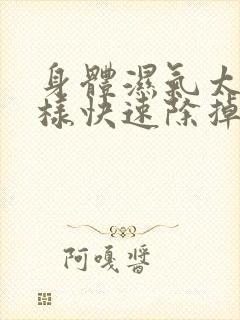 身體濕氣太
樣快速除掉
阿嘎醬